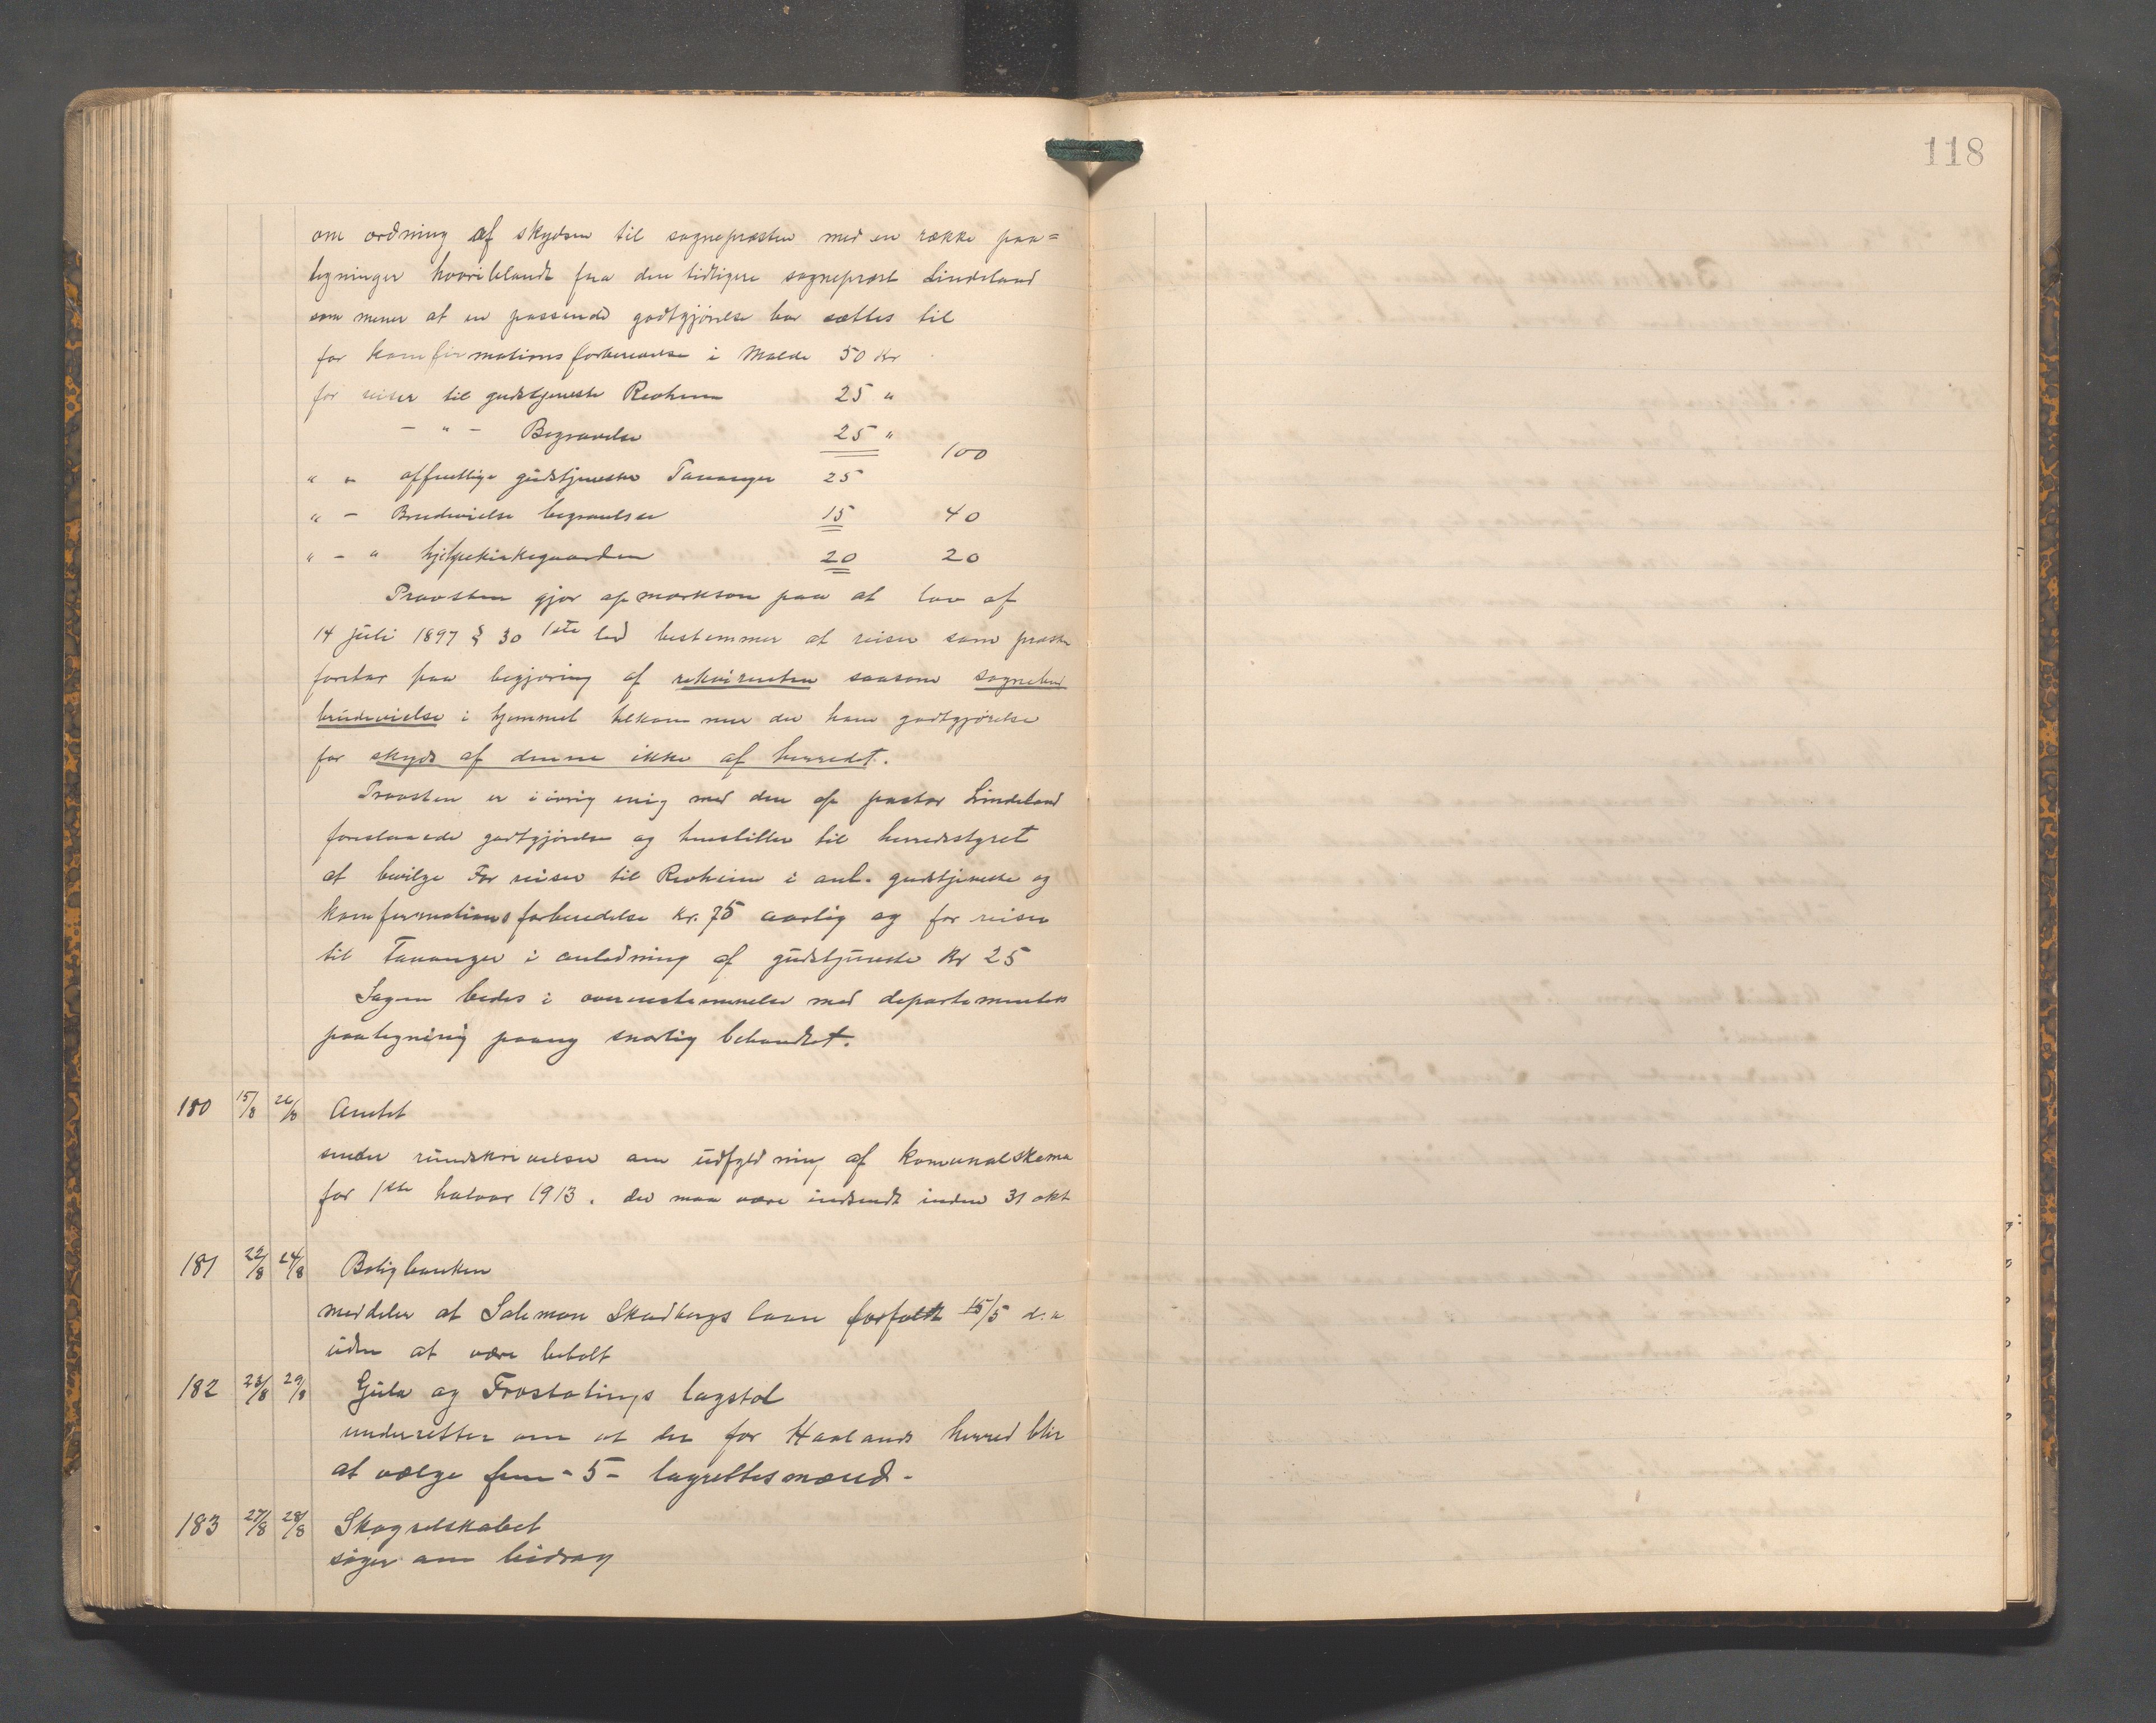 118
om ordning af skydsen til sognepræsten med en række paa=
tegninger hvoriblandt fra den tidligere sogneprest Lindeland
som mener at en passende godtgjörelse bør sættes til
for konfirmationsforberedelse i Malde 50 Kr
for reiser til gudstjeneste Revheim 25 "
- " - Begravelse 25 " 100
" " offentlige gudstjenester Tananger 25
" - Brudevielse begravelser 15 40
" - " hjelpekirkegaarden 20 20
Provsten gjør opmerksom paa at lov af
14 juli 1897 § 30 1ste led bestemmer at reiser som præsten
foretar paa begjæring af rekvirenten saasom sognebud
brudevielse i hjemmet tilkommer der ham godtgjörelse
for skyds af denne ikke af herredet.
Provsten er iövrig enig med den af pastor Lindeland
foreslaaede godtgjörelse og henstiller til herredsstyret
at bevilge For reiser til Revheim i anl. gudstjeneste og
konfirmationsforberedelse Kr. 75 aarlig og for reiser
til Tananger i anledning af gudstjeneste Kr 25
Sagen bedes i overensstemmelse med departementets
paategning paany snarlig behandlet.
180 15/8 26/8 Amtet
sender rundskrivelse om udfyldning af komunalskema
for 1ste halvaar 1913. der maa være indsendt inden 31 okt
181 22/8 24/8 Boligbanken
meddeler at Salemon Skadbergs laan forfaldt 15/5 d.a
uden at være betalt
182 23/8 29/8 Gula og Frostatings lagstol
underretter om at der for Haalands herred blir
at vælge fem - 5 - lagrettesmænd -
183 27/8 28/8 Skogselskabet
söger om bidrag